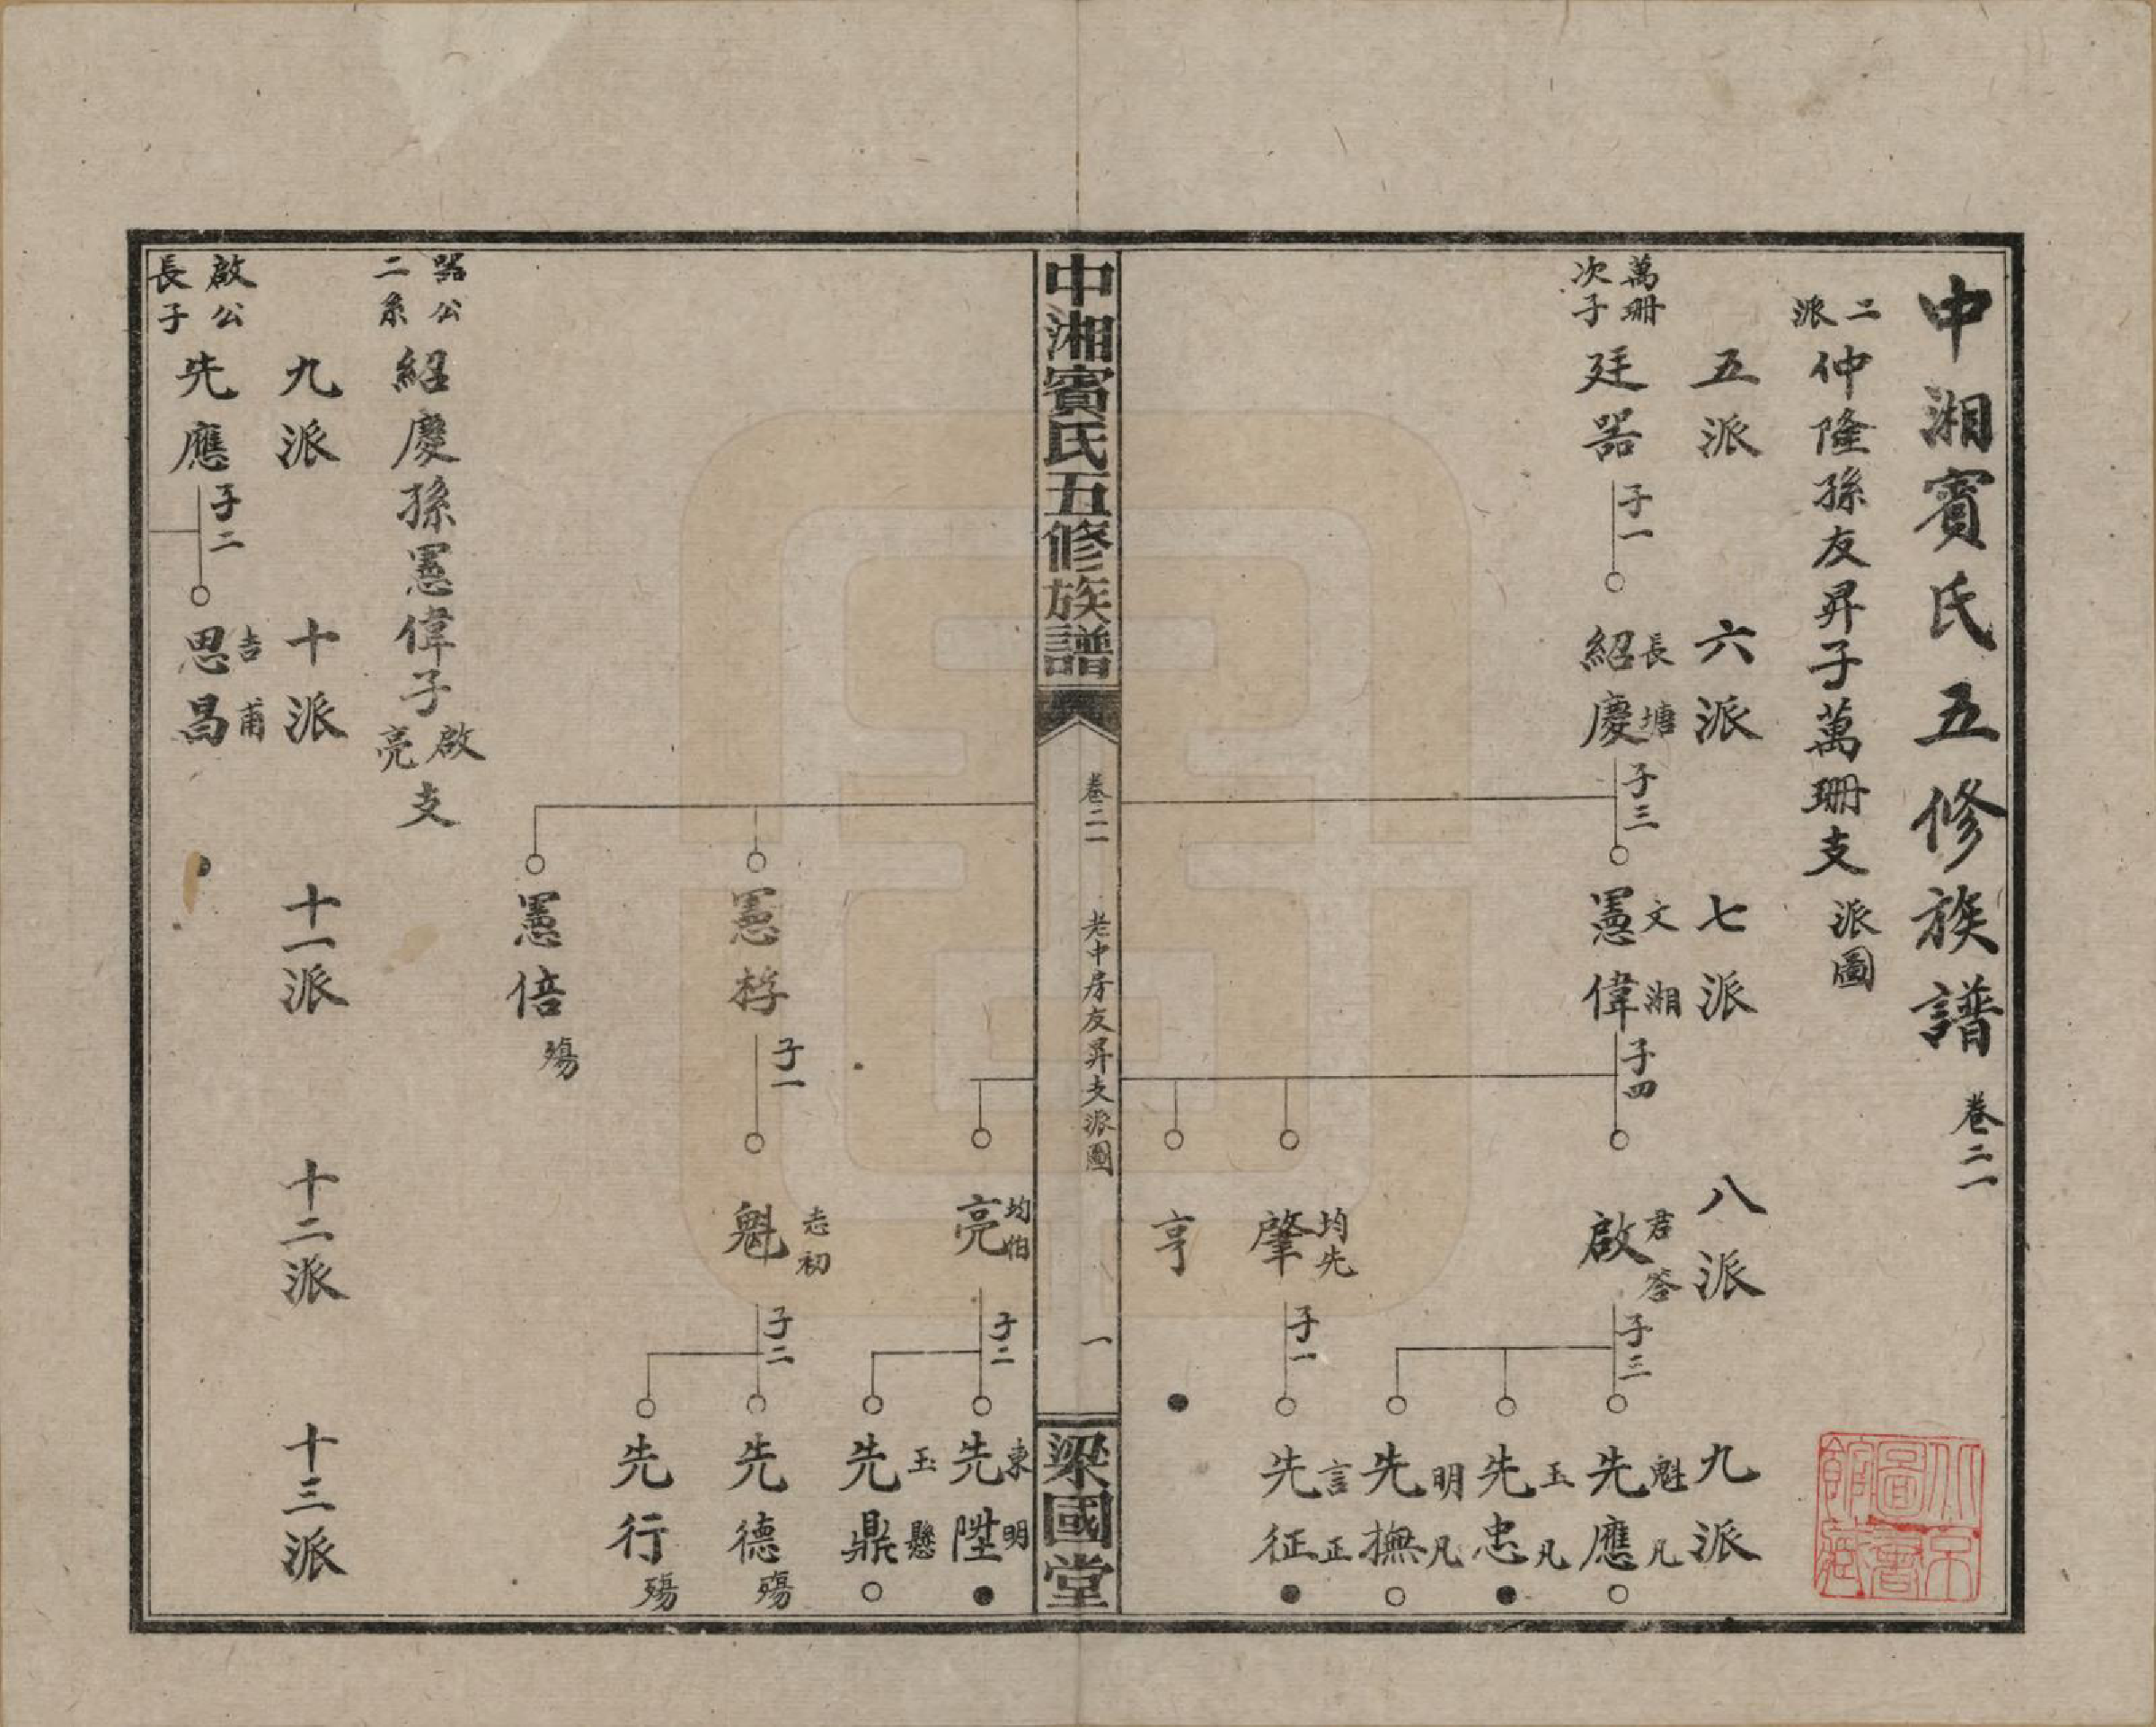 中湘賓氏五修族譜 卷二一
二派 仲隆孫友昇子萬珊支派圖
五派 六派 七派 八派 九派
萬珊次子 廷器 子一
紹慶 長塘 子三
憲偉 文湘 子四
啟 君答 子三
先應 魁凡
先忠 玉凡
先撫 明凡
肇 均先 子一
先征 言正
亨
中湘賓氏五修族譜 卷二一 老中房友昇支派圖 一 梁國堂
亮 均伯 子二
先陞 東明
先鼎 玉懸
憲桴 子一
魁 志初 子二
先德 殤
先行 殤
憲倍 殤
器公二系 紹慶孫憲偉子啟亮支
九派 十派 十一派 十二派 十三派
啟公長子 先應 子二
思昌 吉甫
北京圖書館藏